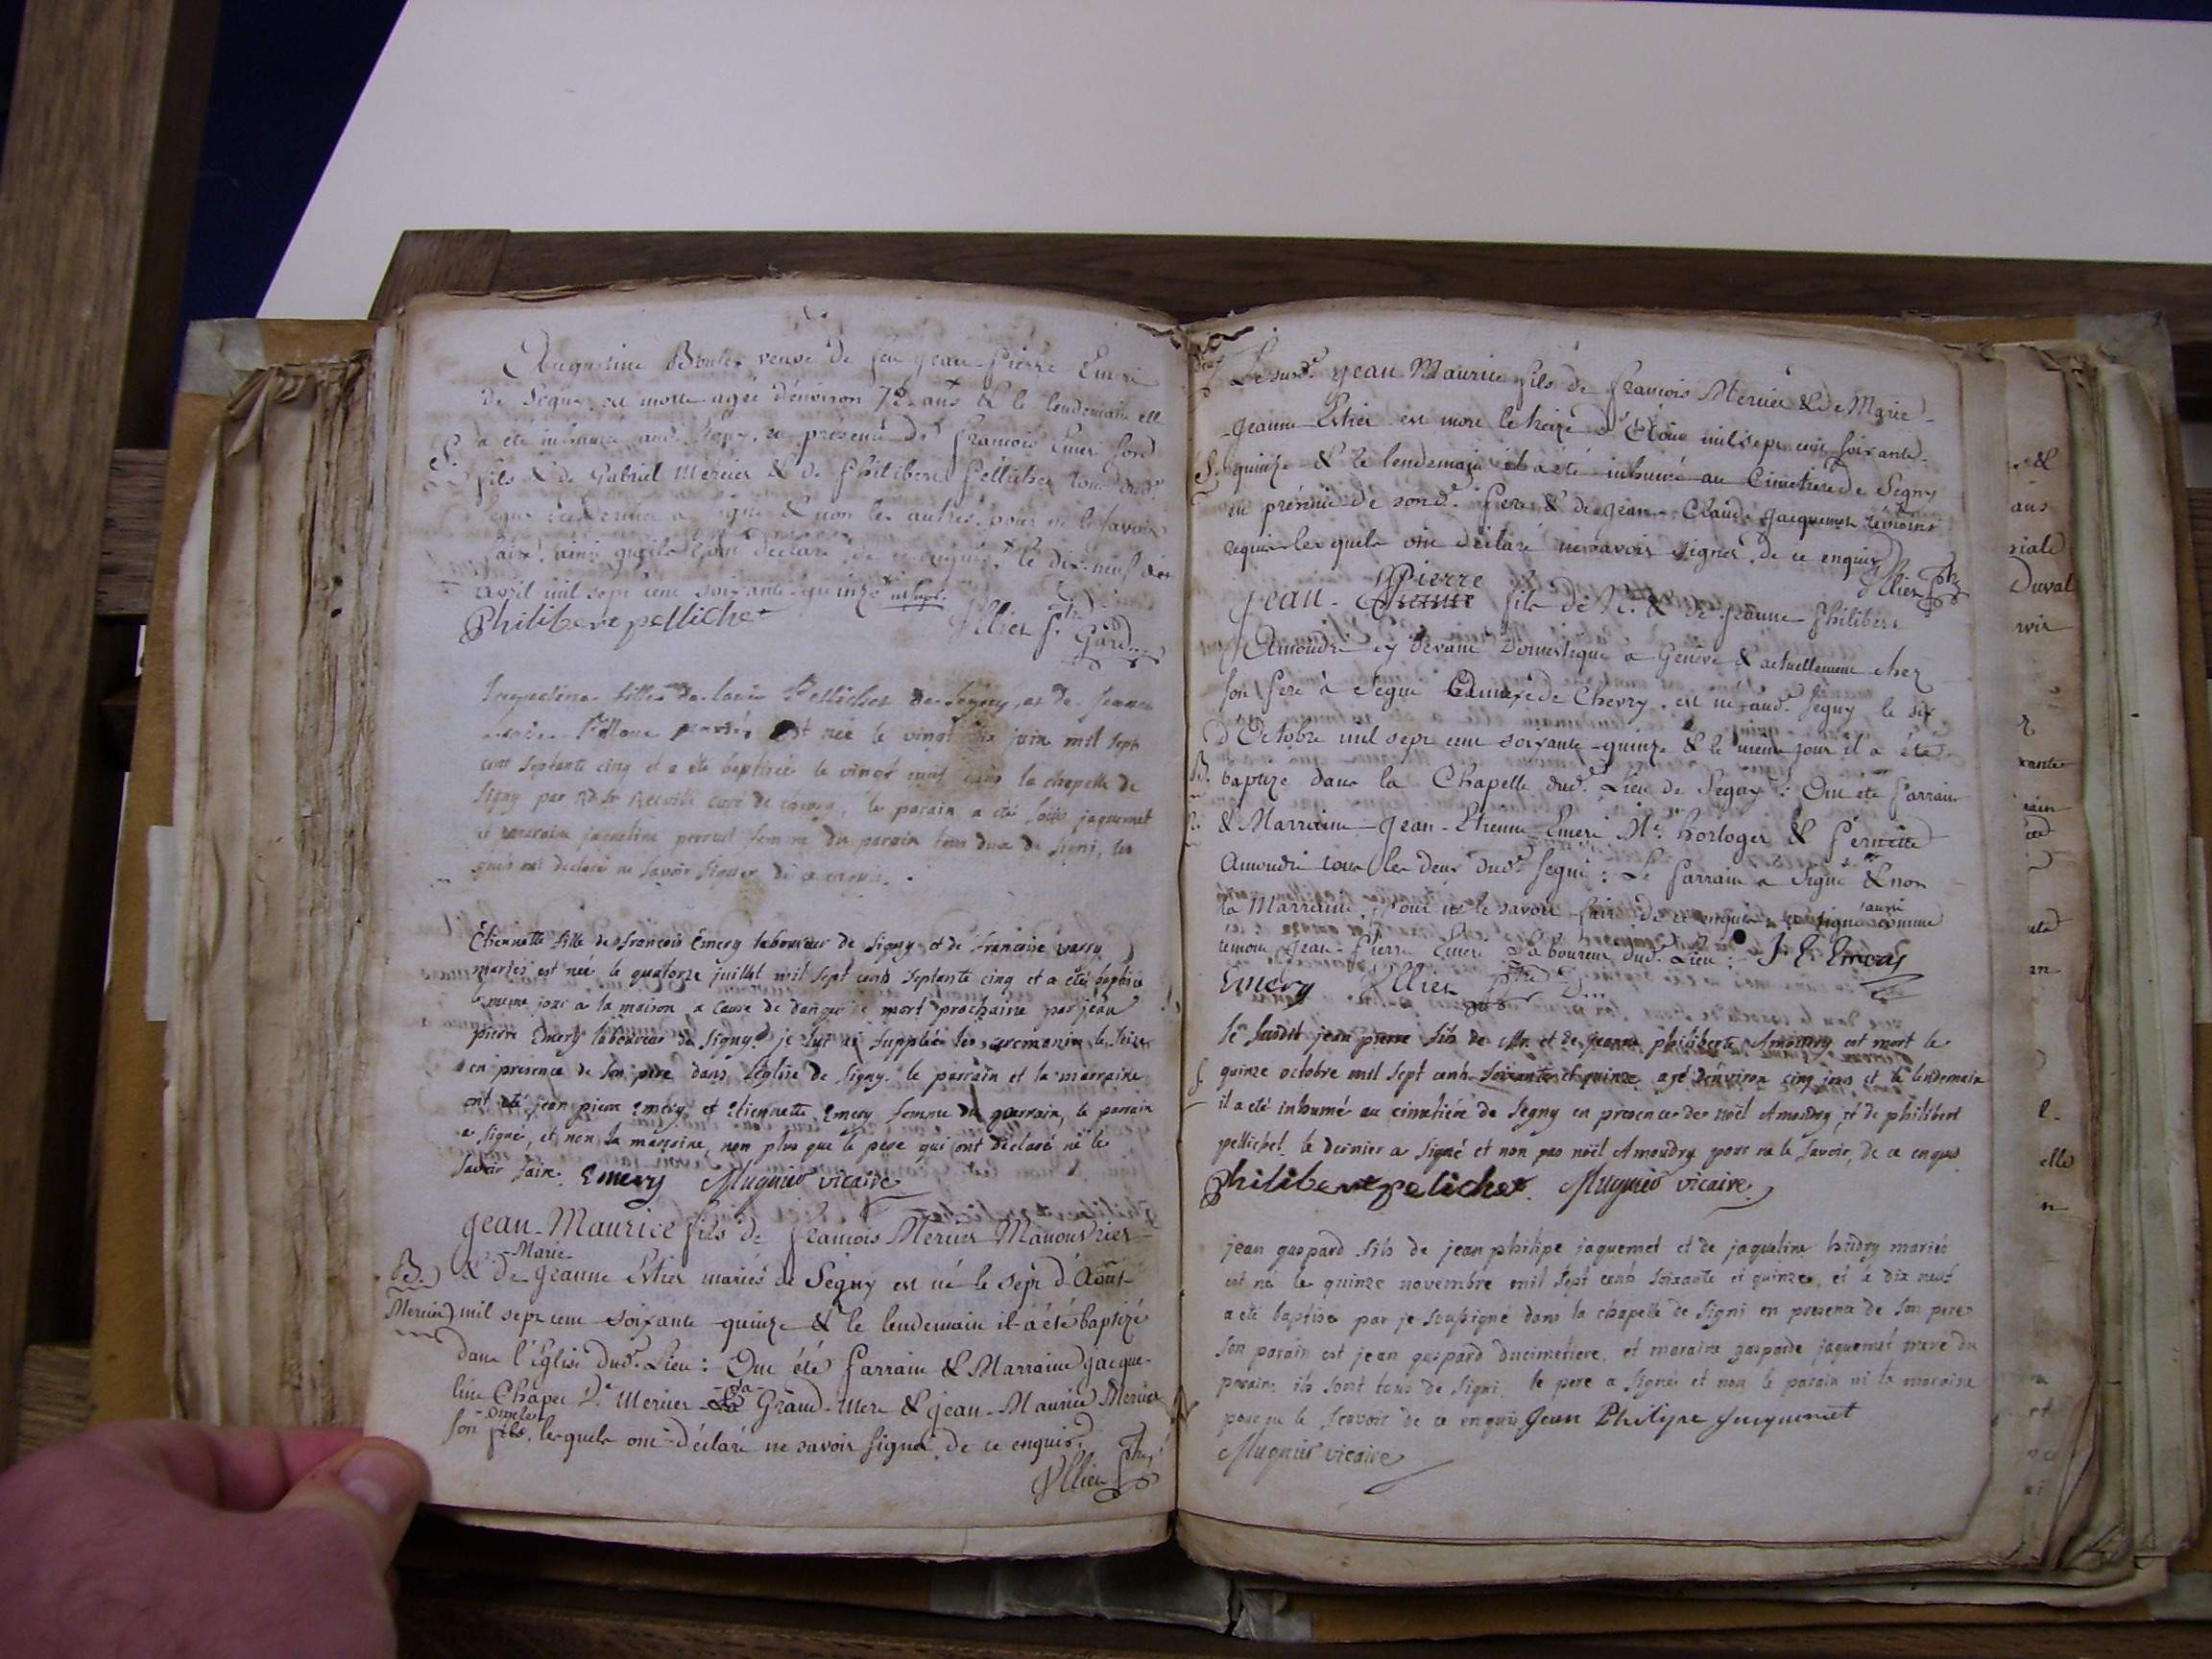 Augustine veuve de feu Jean-Pierre Emeri
de Segny, est morte agée d'environ 78. ans & le lendemain elle
S. a été inhumée aud. Segny, en présence de françois Emeri sond.
fils & de Gabriel Mercier & de Philibert Pellichet tous dud.
Segni & non les autres pour ne le savoir
faire, ainsi qu'ils l'ont déclaré de ce enquis, le dix-neuf dud.
avril mil sept cent soixante-quinze
Philibert pellichet Ullier P.tre
Jacqueline fille de Louis Pellichet de Segny, et de Jeanne
mariés est née le vingt six juin mil sept
cent septante cinq et a été baptisée le vingt dans la chapelle de
Signy par Rd. Sr. curé de , le parain a été Louis jaquemet
et maraine jaqueline femme du parain tous deux de Signi, les
quels ont declaré ne savoir signer de ce enquis.
Etiennette fille de francois Emery laboureur de Signy et de francoise
mariés est née le quatorze juillet mil sept cent septante cinq et a été baptisée
le meme jour a la maison a cause de danger de mort prochaine par jean
pierre Emery laboureur de Signy. je lui ai supplée les ceremonies le seize
en presence de son pere dans l'église de Signy. le parrain et la marraine
ont été jean pierre Emery et Etiennette Emery femme du parrain, le parrain
a signé, et non la marraine, non plus que le pere qui ont déclaré ne le
savoir faire. Emery Mugnier vicaire
Jean-Maurice fils de francois Mercier Manouvrier
-Marie-
B. & de Jeanne Estier mariés de Segny est né le sept d'Aout
Mercier mil sept cent soixante quinze & le lendemain il a été baptizé
dans l'Église dud. Lieu : Ont été Parrain & Marraine Jacque-
line Chapu V.e Mercier sa Grand-Mere & Jean-Maurice Mercier
oncle
son fils, lesquels ont déclaré ne savoir signer, de ce enquis.
Ullier P.tre
Le sud. Jean Maurice fils de francois Mercier & de Marie-
Jeanne Estier est mort le treize d'Août mil sept cent soixante
S. quinze & le lendemain il a été inhumé au Cimetiere de Segny
en présence de sond. Pere & de Jean-Claude Jacquemet témoins
requis lesquels ont déclaré ne savoir signer, de ce enquis
Ullier P.tre
Pierre
Jean-Etienne fils de N. & de Jeanne Philiberte
Amoudri cy devant Domestique à Genève & actuellement chez
son Pere à Segni Annexe de Chevry, est né aud. Segny le six
d'Octobre mil sept cent soixante-quinze & le meme jour il a été
B. baptizé dans la Chapelle dud. Lieu de Segny : Ont été Parrain
& Marraine Jean-Etienne Emeri M.e horloger & Pernette
Amoudri tous les deux dud. Segni : Le Parrain a signé & non
la Marraine, pour ne le savoir faire de ce enquis, a signé aussi comme
témoin Jean-Pierre Emeri Laboureur dud. Lieu : J. E. Emery
Emery Ullier P.tre
le susdit jean pierre fils de Mr. et de jeanne philiberte Amoudry est mort le
S. quinze octobre mil sept cent soixante et quinze agé d'environ cinq jours et le lendemain
il a été inhumé au cimetiére de Segny en presence de noël Amoudry et de philibert
pellichet. le dernier a signé et non pas noël Amoudry pour ne le savoir, de ce enquis
Philibert pelichet. Mugnier vicaire
jean gaspard fils de jean philipe jaquemet et de jaqueline hudry mariés
est né le quinze novembre mil sept cent soixante et quinze, et le dix neuf
a été baptisé par je soussigné dans la chapelle de Signi en presence de son pere
son parain est jean gaspard ducimetiere, et maraine gasparde jaquemet mere du
parain. ils sont tous de Signi. le pere a signé et non le parain ni la maraine
pour ne le scavoir de ce enquis Jean Philipe Jacquemet
Mugnier vicaire